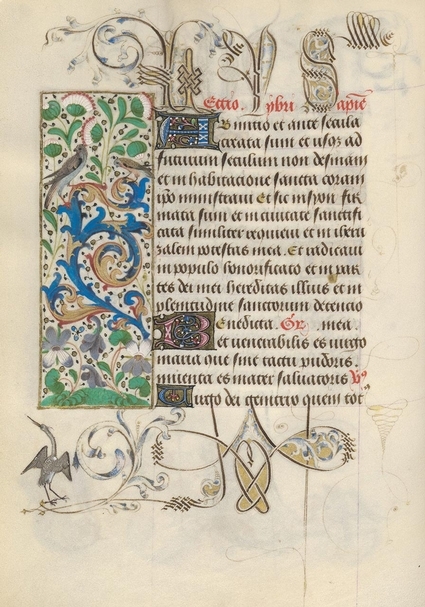 Lectio. lybri Sapiē
Ab initio et ante secula
creata sum et usqȝ ad
futurum seculum non desinam
et in habitacione sancta coram
ipo ministraui Et sic in syon fir
mata sum et in ciuitate sanctifi
cata similiter requieui et in iheru
zalem potestas mea. Et radicaui
in populo honorificato et in par
tes dei mei hereditas illius et in
plenitudine sanctorum detencio
Benedicta. Gr. mea
et uenerabilis es uirgo
maria que sine tactu pudoris.
inuenta es mater saluatoris
Uirgo dei genitrix quem tot